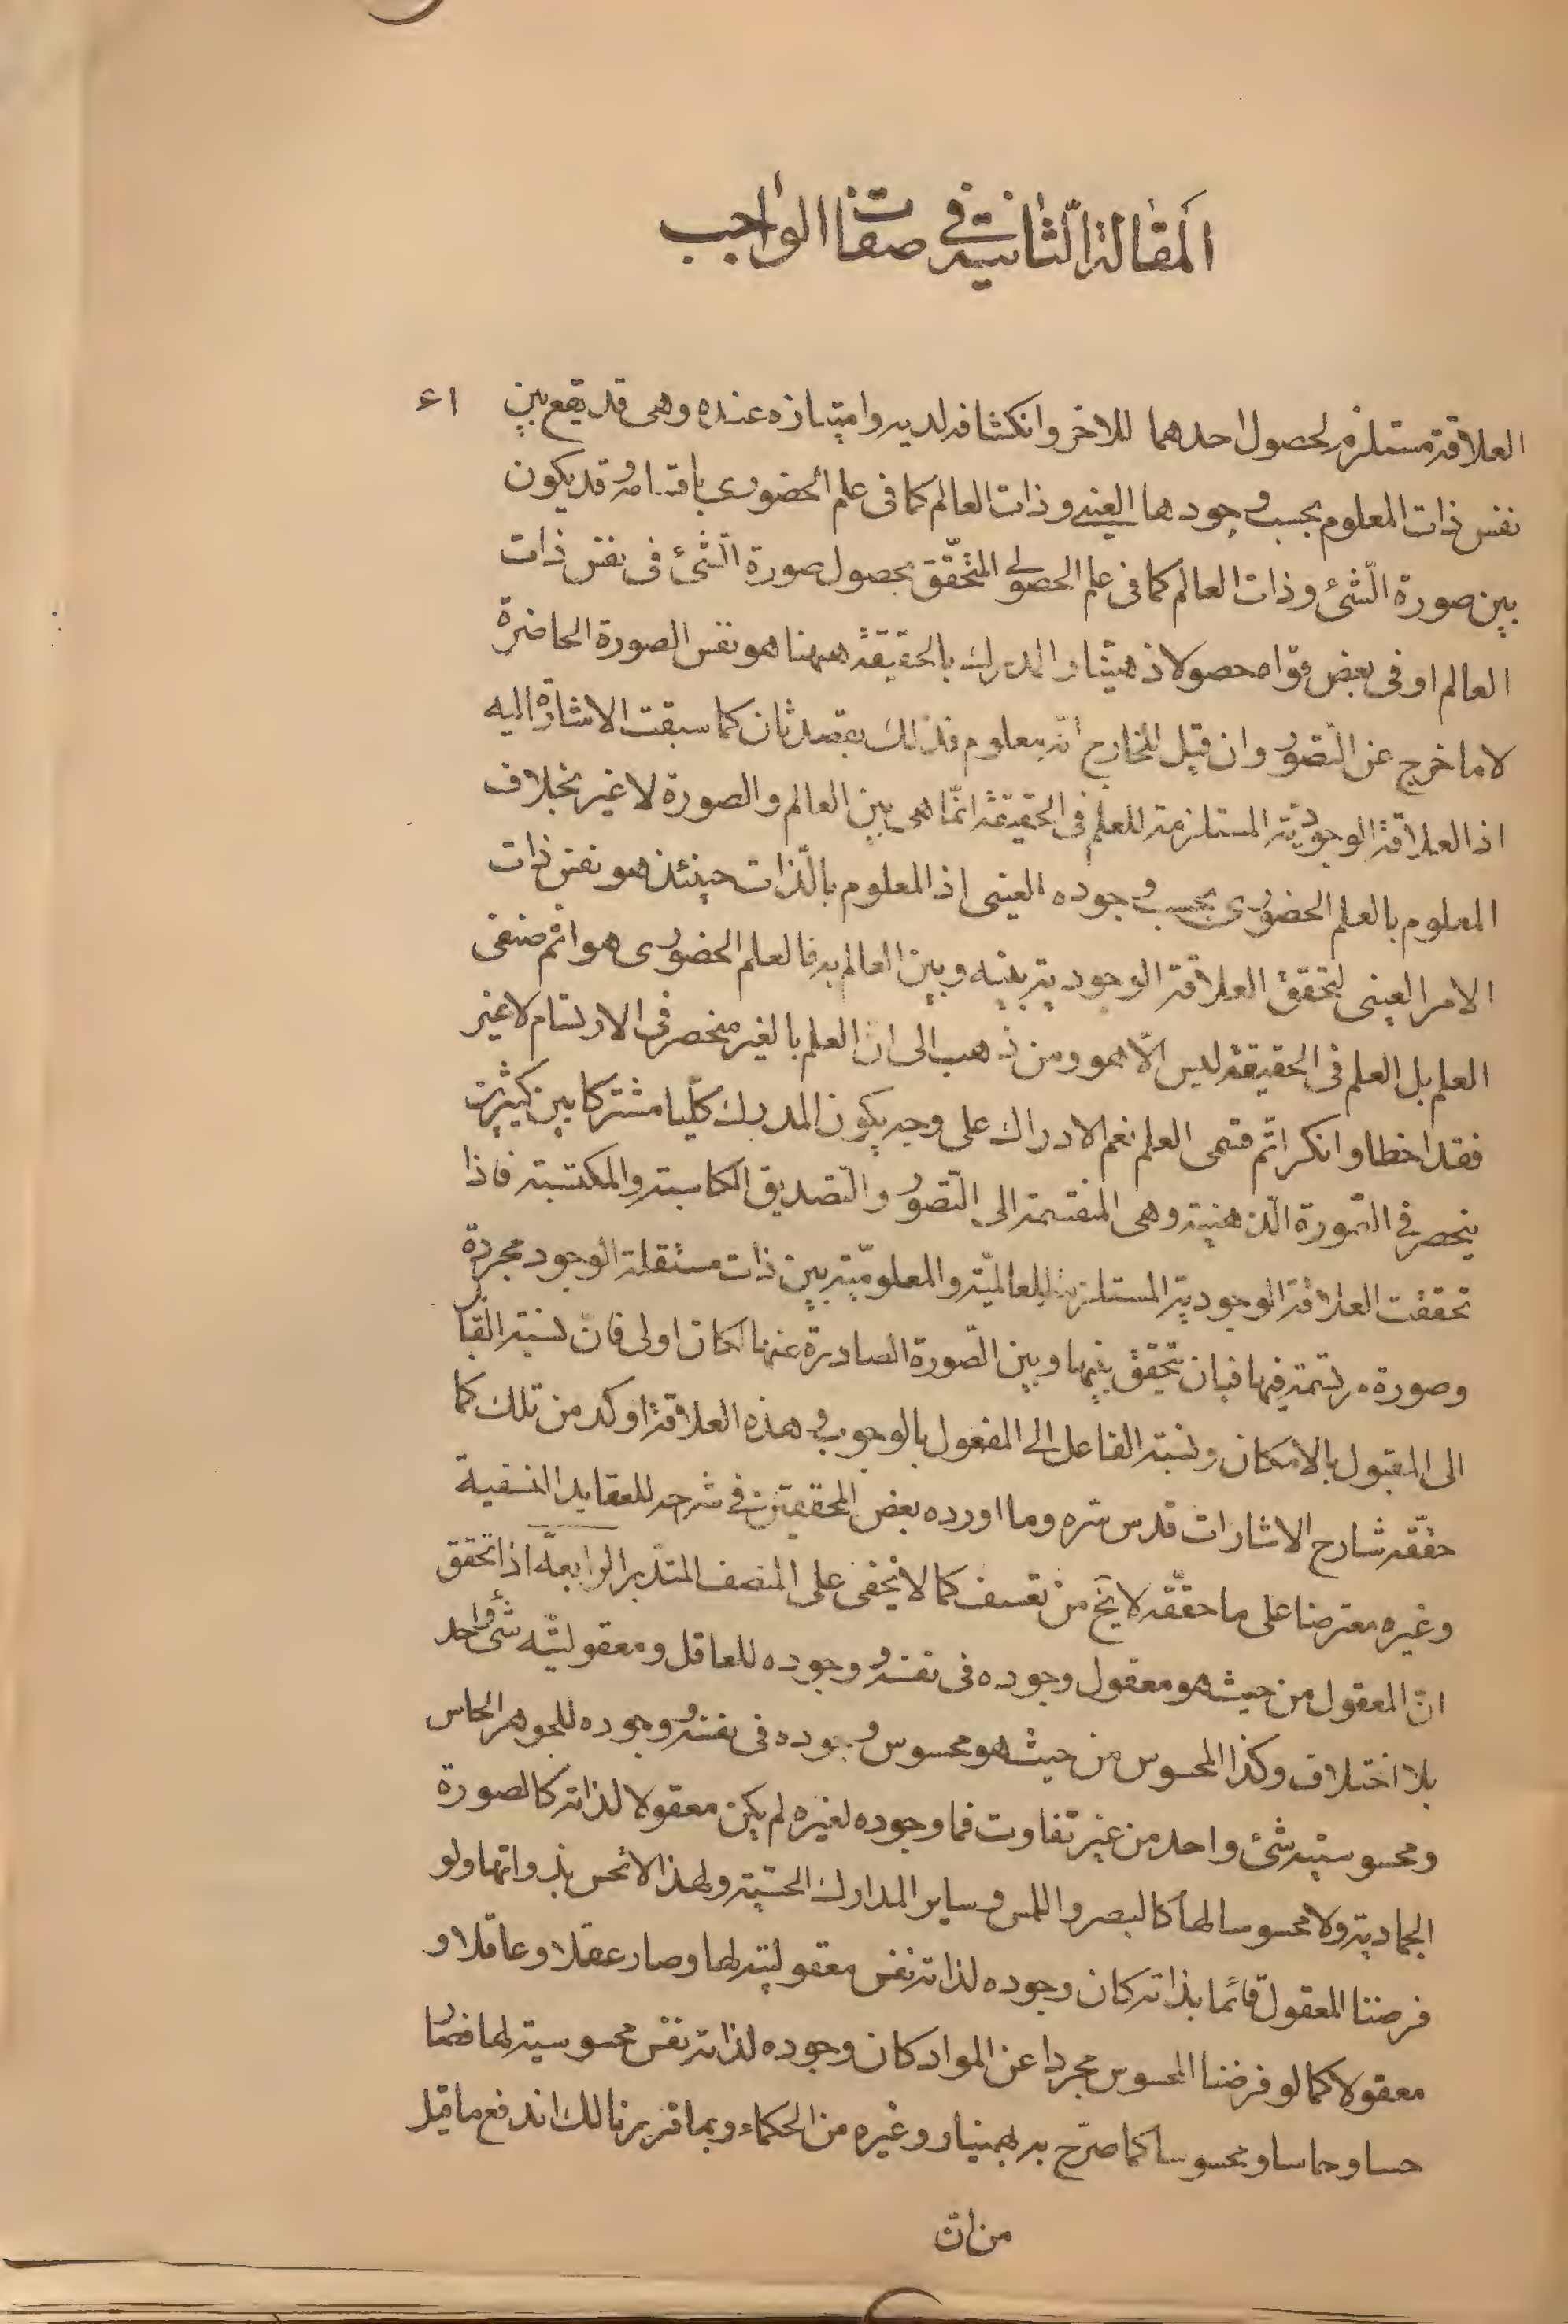 المقالة الثانية في صفات الواجب
٤١
العلاقة مستلزمة لحصول احدهما للاخر وانكشافه لديه وامتيازه عنده وهى قد يقع بين
نفس ذات المعلوم بحسب وجودها العينى وذات العالم كما فى علم الحضورى باقسامه وقد يكون
بين صورة الشئ وذات العالم كما فى علم الحصولى المتحقق بحصول صورة الشئ فى نفس ذات
العالم او فى بعض قواه حصولا ذهنيا والمدرك بالحقيقة ههنا هو نفس الصورة الحاضرة
لا ما خرج عن التصور وان قيل للخارج انه معلوم فذلك بقصد ثان كما سبقت الاشارة اليه
اذ العلاقة الوجودية المستلزمة للعلم فى الحقيقة انما هى بين العالم والصورة لا غير بخلاف
المعلوم بالعلم الحضورى بحسب وجوده العينى اذ المعلوم بالذات حينئذ هو نفس ذات
الامر العينى لتحقق العلاقة الوجودية بينه وبين العالم به فالعلم الحضورى هو اتم صنفى
العلم بل العلم فى الحقيقة ليس الا هو ومن ذهب الى ان العلم بالغير منحصر فى الارتسام لا غير
فقد اخطا وانكر اتم قسمى العلم نعم الادراك على وجه يكون المدرك كليا مشتركا بين كثيرين
ينحصر فى الصورة الذهنية وهى المنقسمة الى التصور والتصديق الكاسبة والمكتسبة فاذا
تحققت العلاقة الوجودية المستلزمة للعالمية والمعلومية بين ذات مستقلة الوجود مجردة
وصورة مرتسمة فيها فبان تتحقق بينها وبين الصورة الصادرة عنها لكان اولى فان نسبة القابل
الى المقبول بالامكان ونسبة الفاعل الى المفعول بالوجوب وهذه العلاقة اوكد من تلك كما
حققه شارح الاشارات قدس سره وما اورده بعض المحققين فى شرحه للعقايد النسفية
وغيره معترضا على ما حققه لا يخ من تعسف كما لا يخفى على المنصف المتدبر الرابعة اذا تحقق
ان المعقول من حيث هو معقول وجوده فى نفسه ووجوده للعاقل ومعقوليته شئ واحد
بلا اختلاف وكذا المحسوس من حيث هو محسوس وجوده فى نفسه ووجوده للجوهر الحاس
ومحسوسيته شئ واحد من غير تفاوت فما وجوده لغيره لم يكن معقولا لذاته كالصورة
الجمادية ولا محسوسا لها كالبصر واللمس وساير المدارك الحسية ولهذا لا تحس بذواتها ولو
فرضنا المعقول قائما بذاته كان وجوده لذاته نفس معقوليته لها وصار عقلا وعاقلا و
معقولا كما لو فرضنا المحسوس مجردا عن المواد كان وجوده لذاته نفس محسوسيته لها فصار
حسا وحاسا ومحسوسا كما صرح به بهمنيار وغيره من الحكماء وبما قررنا لك اندفع ما قيل
من ان